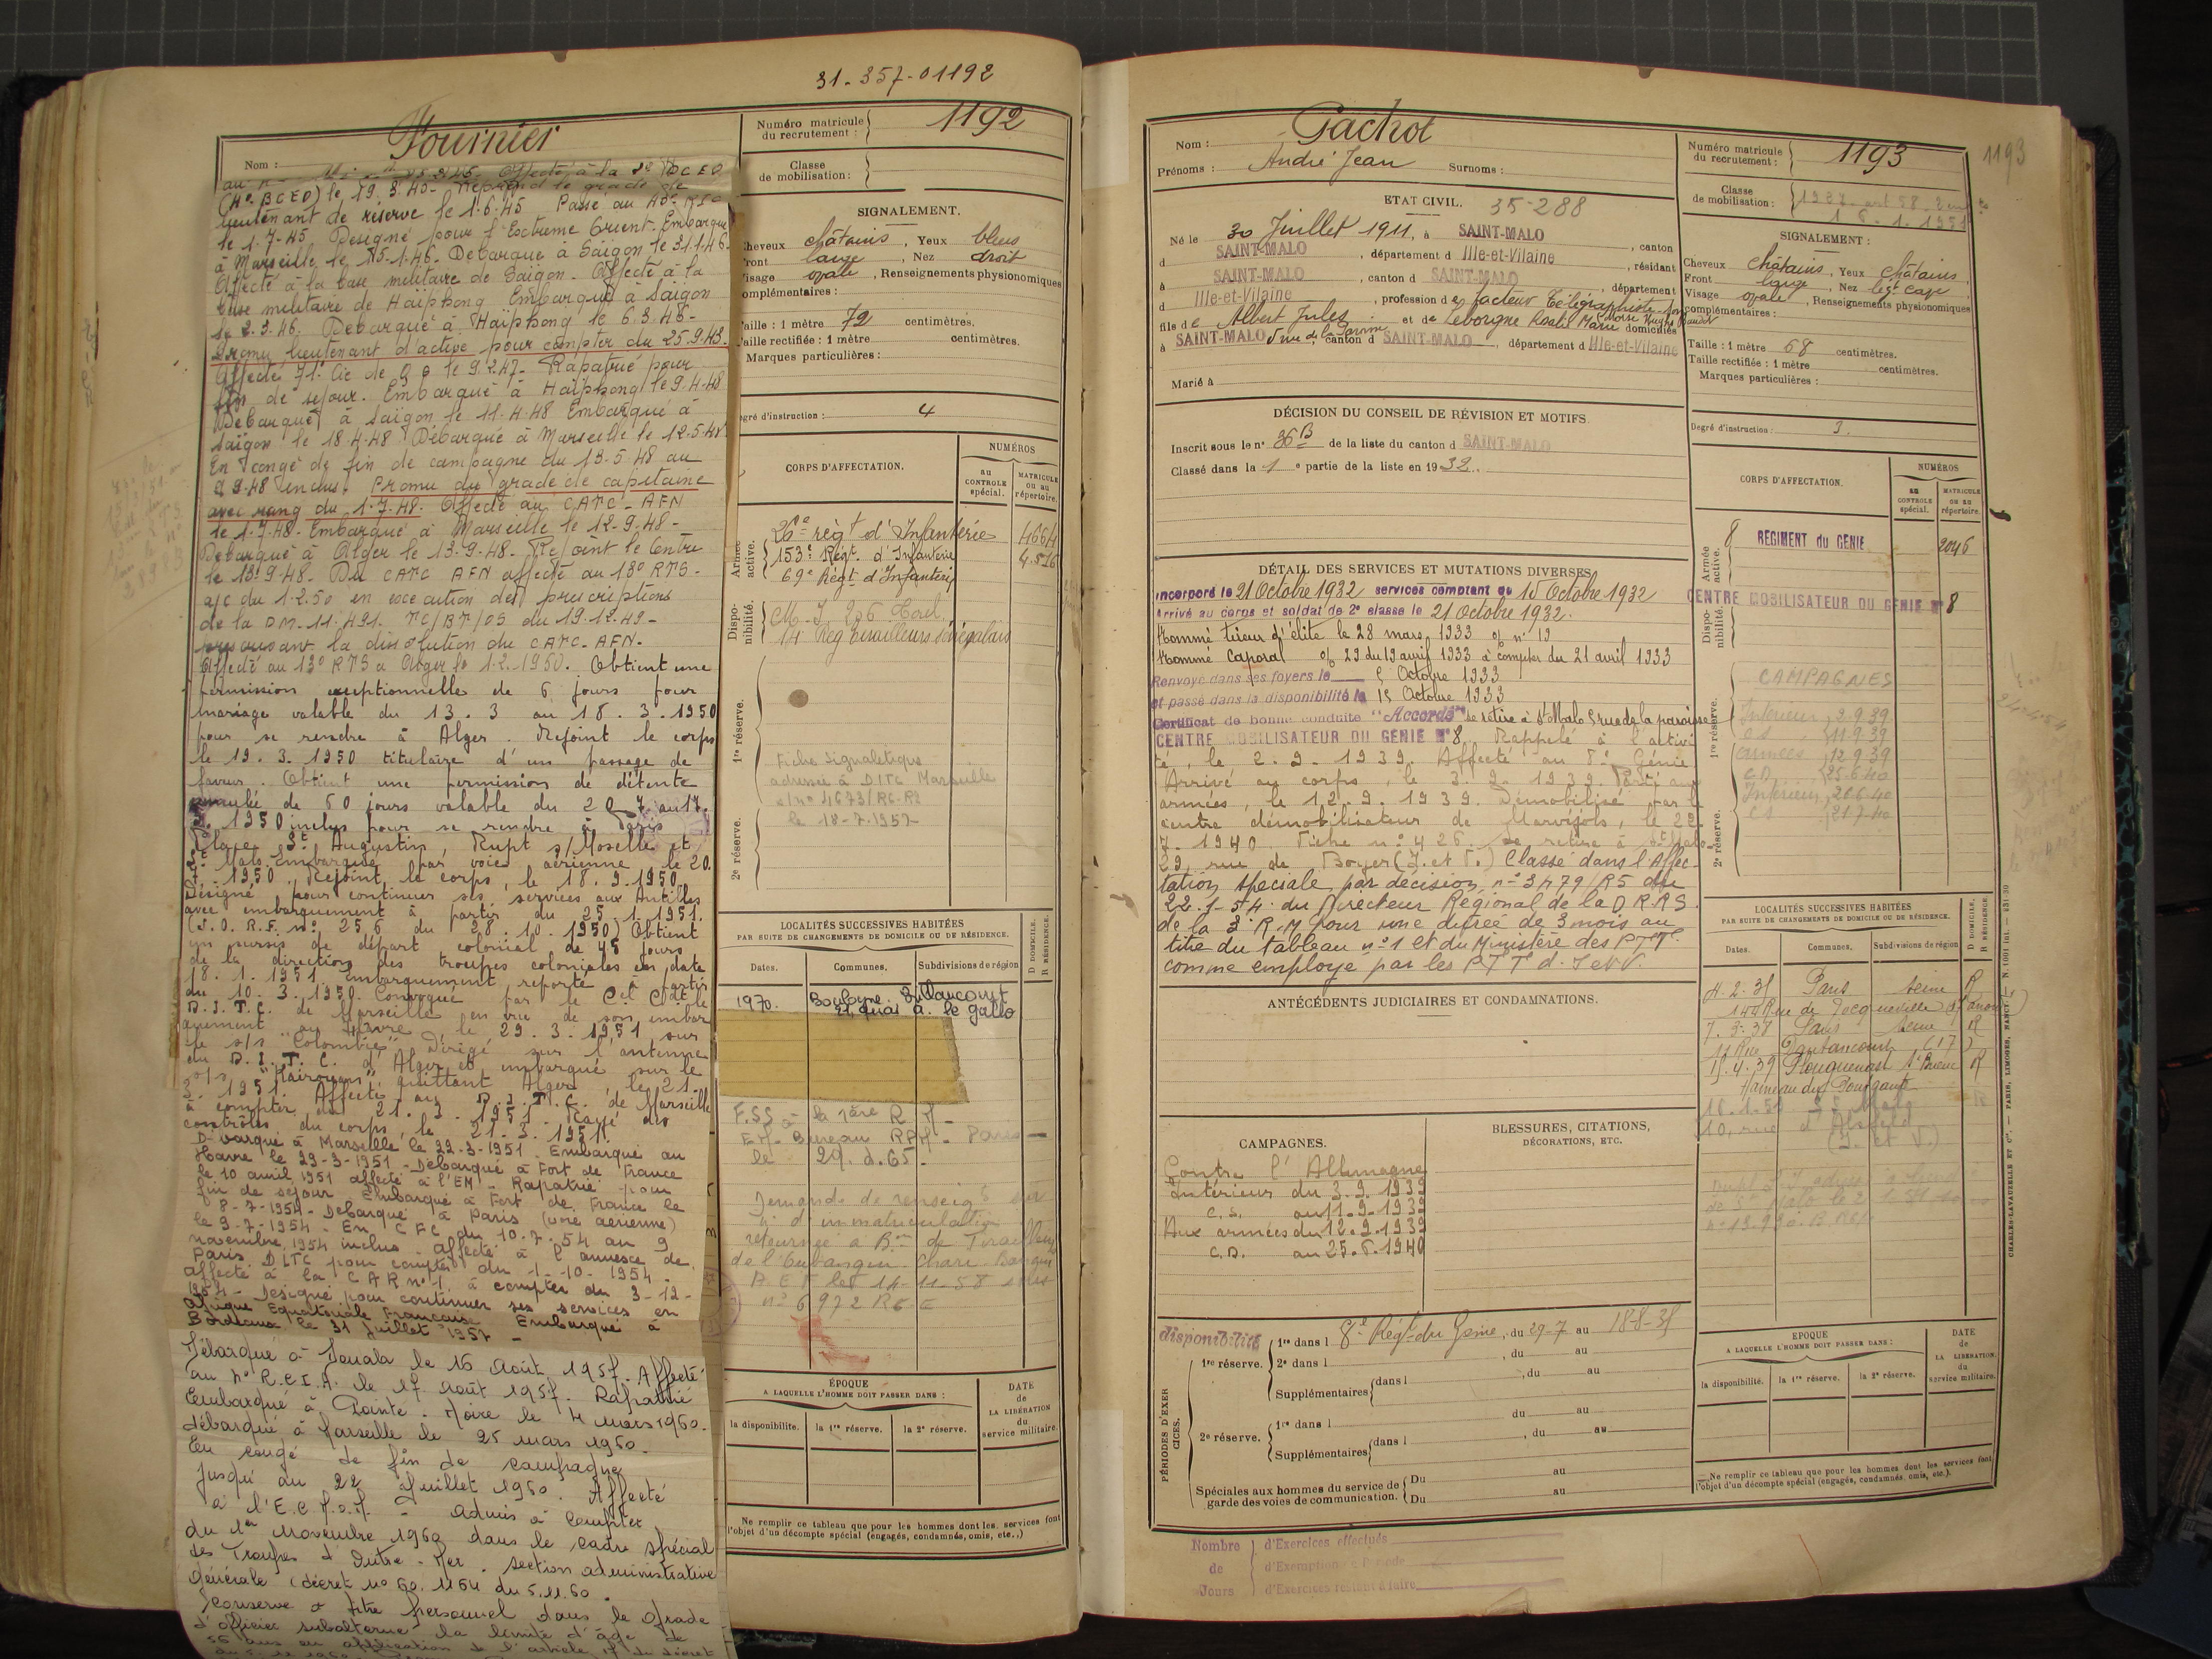 31-357-01192
Fournier
Nom :
Numéro matricule du recrutement : 1192
Classe de mobilisation :
Affecté à la
(4e BCEO) le 19.3.45 - Reprend le grade de
lieutenant de réserve le 1.6.45 Passé au
le 1.7.45 Designé pour l'Extreme Orient. Embarqué
à Marseille le 15.1.46. Debarqué à Saïgon le 31.1.46.
Affecté à la base militaire de Saigon. Affecté à la
base militaire de Haïphong Embarqué à Saïgon
le 2.3.46. Debarqué à Haïphong le 6.3.46-
Promu lieutenant d'active pour compter du 25.9.43.
Affecté 71e Cie de le 9.2.47- Rapatrié pour
fin de sejour. Embarqué à Haïphong le 9.4.48
Debarqué à Saïgon le 11.4.48 Embarqué à
Saïgon le 18.4.48 Débarqué à Marseille le 12.5.48
En congé de fin de campagne du 13.5.48 au
9.48 inclus. Promu du grade de capitaine
avec rang du 1.7.48. Affecté au CATC-AFN
le 1.7.48- Embarqué à Marseille le 12-9-48-
Debarqué à Alger le 13-9-48- Rejoint le Centre
le 13-9-48. Du CATC AFN affecté au 13e RTS-
a/c du 1.2.50 en execution des prescriptions
de la DM-11.491. TC/BT/OS du 19.12.49-
prescrivant la dissolution du CATC-AFN-
Affecté au 13e RTS à Alger le 1.2.1950. Obtient une
permission exceptionnelle de 6 jours pour
mariage valable du 13.3 au 18.3.1950
pour se rendre à Alger. Rejoint le corps
le 19.3.1950 titulaire d'un passage de
faveur. Obtient une permission de détente
de 60 jours valable du 20.7 au 17.
1950 inclus pour se rendre à Paris
Place St Augustin, Rupt s/Moselle et
St Malo. Embarqué par voie aérienne le 20.
7.1950. Rejoint le corps, le 18.9.1950.
Désigné pour continuer ses services aux Antilles
avec embarquement à partir du 25.1.1951.
(J.O.R.F. n° 256 du 28.10.1950) Obtient
un sursis de départ colonial de 45 jours
de la direction des troupes coloniales en date
18.1.1951. Embarquement reporté à partir
du 10.3.1950. Convoqué par le Cel Cdt le
D.I.T.C. de Marseille en vue de son embar
quement au Havre, le 29.3.1951, sur
le s/s "Colombie". Dirigé sur l'antenne
du D.I.T.C. d'Alger et embarqué sur le
s/s "Kairouan" quittant Alger, le 21.
3.1951. Affecté au D.I.T.C. de Marseille
à compter du 21.3.1951. Rayé des
contrôles du corps, le 21.3.1951.
Débarqué à Marseille le 22-3-1951. Embarqué au
Havre le 29-3-1951 - Débarqué à Fort de France
le 10 avril 1951 affecté à l'EM - Rapatrié pour
fin de séjour Embarqué à Fort de France le
8-7-1954 - Debarqué à Paris (voie aerienne)
le 9-7-1954 - En CFC du 10.7.54 au 9
novembre 1954 inclus - affecté à l'annexe de
Paris DITC pour compter du 1-10-1954
affecté à la CAR n° 1 à compter du 3-12-
1954 - Designé pour continuer ses services en
Afrique Equatoriale Française Embarqué à
Bordeaux le 31 juillet 1957 -
Débarqué à Douala le 16 Août 1957. Affecté
au R.C.I.A. le 17 Août 1957. Rapatrié
Embarqué à Pointe Noire le 4 mars 1960.
débarqué à Marseille le 25 mars 1960.
En congé de fin de campagne
jusqu'au 22 Juillet 1960. Affecté
à l'E.C. - admis à compter
du 1er novembre 1960 dans le cadre spécial
des Troupes d'Outre-Mer. section administrative
Générale (décret n° 60.1154 du 5.11.60.
conserve à titre personnel dans le grade
d'officier subalterne la limite d'âge de
56 ans en application de l'article 17 du décret
SIGNALEMENT.
Cheveux châtains, Yeux bleus
Front large, Nez droit
Visage ovale, Renseignements physionomiques
complémentaires :
Taille : 1 mètre 72 centimètres.
Taille rectifiée : 1 mètre centimètres.
Marques particulières :
Degré d'instruction : 4
CORPS D'AFFECTATION.
NUMÉROS
au CONTROLE spécial.
MATRICULE ou au répertoire.
Armée active.
26e règt d'Infanterie 4664
153e Régt. d'Infanterie 4.516
69e Régt d'Infanterie
Disponibilité.
C.M.I. 206
14e Rég Tirailleurs Sénégalais
1re réserve.
Fiche signalétique
adressée à DITC Marseille
s/n° 4673/R6-R2
le 18-7-1957-
2e réserve.
LOCALITÉS SUCCESSIVES HABITÉES
PAR SUITE DE CHANGEMENTS DE DOMICILE OU DE RÉSIDENCE.
Dates. Communes. Subdivisions de région D DOMICILE. R RÉSIDENCE.
1970. Boulogne-Billancourt
21, quai a. le Gallo
F.S.S à la 1ère R.M
EM- Bureau - Paris -
le 29.2.65-
Demande de renseigts sur
n° d'immatriculation
retournée à Bon de Tirailleurs
de l'Oubangui-Chari- Bangui
A.E.F le 14-11-58 sous
n° 6972 R6-E
ÉPOQUE
A LAQUELLE L'HOMME DOIT PASSER DANS :
DATE de LA LIBÉRATION du service militaire.
la disponibilité. la 1re réserve. la 2e réserve.
Ne remplir ce tableau que pour les hommes dont les services font
l'objet d'un décompte spécial (engagés, condamnés, omis, etc.,)
Nom : Gachot
Prénoms : André Jean Surnoms :
Numéro matricule du recrutement : 1193
1193
Classe de mobilisation :
ETAT CIVIL. 35-288
Né le 30 Juillet 1911, à SAINT-MALO, canton
d SAINT-MALO, département d Ille-et-Vilaine, résidant
à SAINT-MALO, canton d SAINT-MALO, département
d Ille-et-Vilaine, profession de facteur Télégraphiste
fils de Albert Jules et de Leborgne Rosalie Marie domiciliés
à SAINT-MALO 5 rue de la Paroisse, canton d SAINT-MALO, département d Ille-et-Vilaine
Marié à
SIGNALEMENT :
Cheveux châtains, Yeux châtains,
Front large, Nez légt cave,
Visage ovale, Renseignements physionomiques
complémentaires :
Taille : 1 mètre 68 centimètres.
Taille rectifiée : 1 mètre centimètres.
Marques particulières :
Degré d'instruction : 3.
DÉCISION DU CONSEIL DE RÉVISION ET MOTIFS
Inscrit sous le n° 36B de la liste du canton d SAINT-MALO
Classé dans la 1e partie de la liste en 1932.
DÉTAIL DES SERVICES ET MUTATIONS DIVERSES
Incorporé le 21 Octobre 1932 services comptant du 15 Octobre 1932
Arrivé au corps et soldat de 2e classe le 21 Octobre 1932.
Nommé tireur d'élite le 28 mars 1933 o/ n° 19
Nommé Caporal o/ 29 du 19 avril 1933 à compter du 21 avril 1933
Renvoyé dans ses foyers le 5 Octobre 1933
et passé dans la disponibilité le 15 Octobre 1933
Certificat de bonne conduite "Accordé" se retire à St Malo 5 rue de la paroisse
CENTRE MOBILISATEUR DU GENIE N° 8. Rappelé à l'activi
té, le 2.9.1939. Affecté au 8e Génie
Arrivé au corps, le 3.9.1939. Parti aux
armées, le 12.9.1939. Démobilisé par le
centre démobilisateur de Marvejols, le 22.
7.1940. Fiche n° 426. se retire à St Malo
29, rue de Boyer (I. et V.) Classé dans l'Affec-
tation spéciale par décision n° 3479/R5 du
22-1-54 du Directeur Régional de la D.R.RS
de la 3e R.M pour une durée de 3 mois au
titre du tableau n° 1 et du Ministère des PTT
comme employé par les PTT d'I et V.
CORPS D'AFFECTATION.
NUMÉROS
au CONTROLE spécial.
MATRICULE ou au répertoire.
Armée active.
8 REGIMENT du GENIE 2046
Disponibilité.
CENTRE MOBILISATEUR DU GENIE N° 8
1re réserve.
CAMPAGNES
Intérieur 2.9.39
cs 11.9.39
armées 12.9.39
CD 25.6.40
Intérieur 26.6.40
cs 21.7.40
2e réserve.
ANTÉCÉDENTS JUDICIAIRES ET CONDAMNATIONS.
LOCALITÉS SUCCESSIVES HABITÉES
PAR SUITE DE CHANGEMENTS DE DOMICILE OU DE RÉSIDENCE.
Dates. Communes. Subdivisions de région D DOMICILE. R RÉSIDENCE.
Paris Seine R
144 Rue de Tocqueville
Paris Seine R
11 Rue Dautancourt (17)
Plouguenast St Brieuc R
10, rue d'Alsfeld
(I. et V.)
CAMPAGNES.
Contre l'Allemagne
Intérieur du 3.9.1939
C.S. au 11.9.1939
Aux armées du 12.9.1939
C.D. au 25.6.1940
BLESSURES, CITATIONS,
DÉCORATIONS, ETC.
PÉRIODES D'EXERCICES.
disponibilité
1re réserve. 1re dans l 8e Régt du Génie, du 29-7 au 18-8-35
2e dans l , du au
Supplémentaires dans l , du au
2e réserve. 1re dans l du au
Supplémentaires dans l , du au
Spéciales aux hommes du service de garde des voies de communication. Du au
Du au
EPOQUE
A LAQUELLE L'HOMME DOIT PASSER DANS :
DATE de LA LIBERATION du service militaire.
la disponibilité. la 1re réserve. la 2e réserve.
Ne remplir ce tableau que pour les hommes dont les services font
l'objet d'un décompte spécial (engagés, condamnés, omis, etc.).
CHARLES-LAVAUZELLE ET Cie. — PARIS, LIMOGES, NANCY.
Nombre de Jours
d'Exercices effectués
d'Exemption de Période
d'Exercices restant à faire